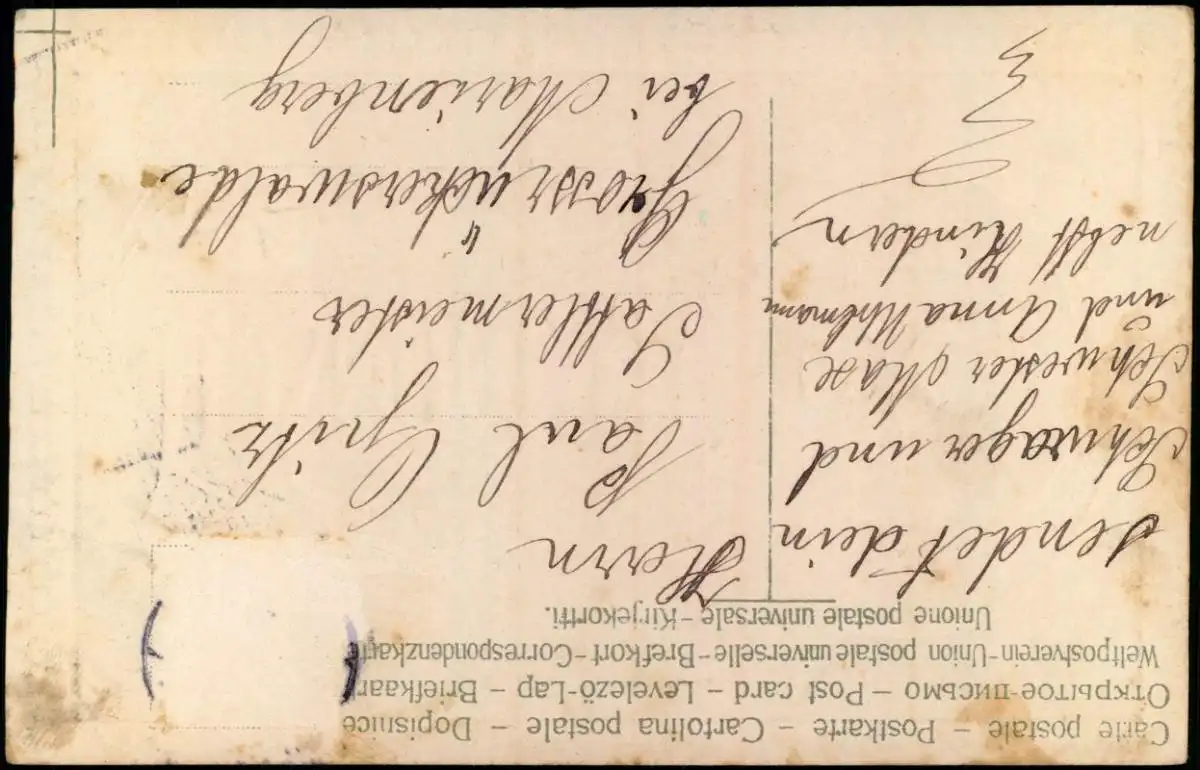 Carte postale – Postkarte – Cartolina postale – Dopisnice
Открытое письмо – Post card – Levelezö-Lap – Briefkaart
Weltpostverein-Union postale universelle-Brefkort-Correspondenzkarte
Unione postale universale-Kirjekortti.
sendet dein
Schwager und
Schwester Max
und Anna Uhlmann
nebst Kindern
Herrn
Paul
Sattlermeister
Grossrückerswalde
bei Marienberg